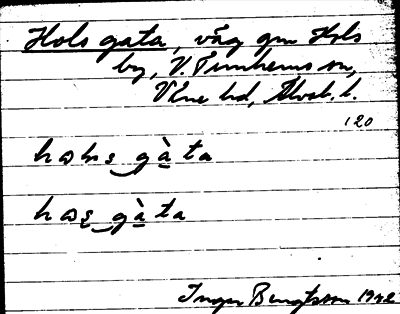 Hols gata, väg gm Hols
by, V. Tunhems sn,
Väne hd, Älvsb. l.
120
gà ta
gà ta
Inger Bengtsson 1942